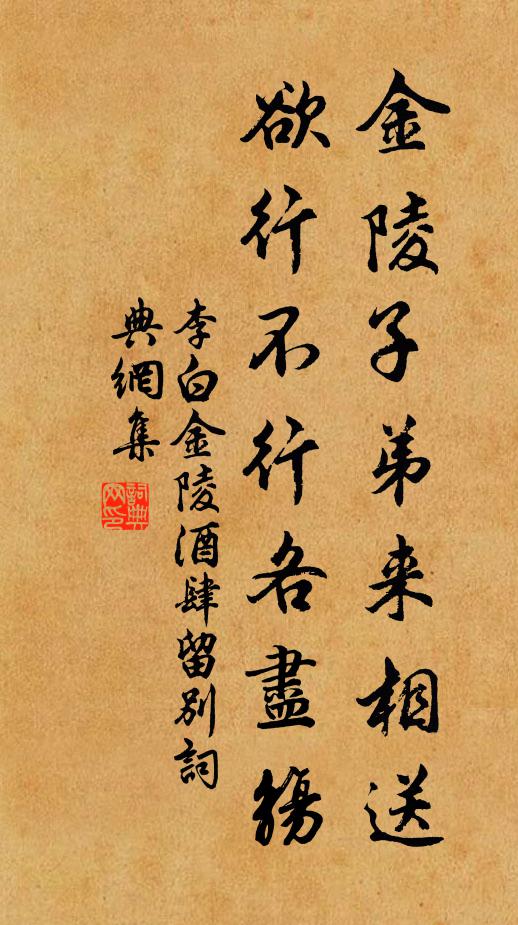 金陵子弟来相送
欲行不行各盡觴
李白金陵酒肆留別詞
典網集
詞典
网印